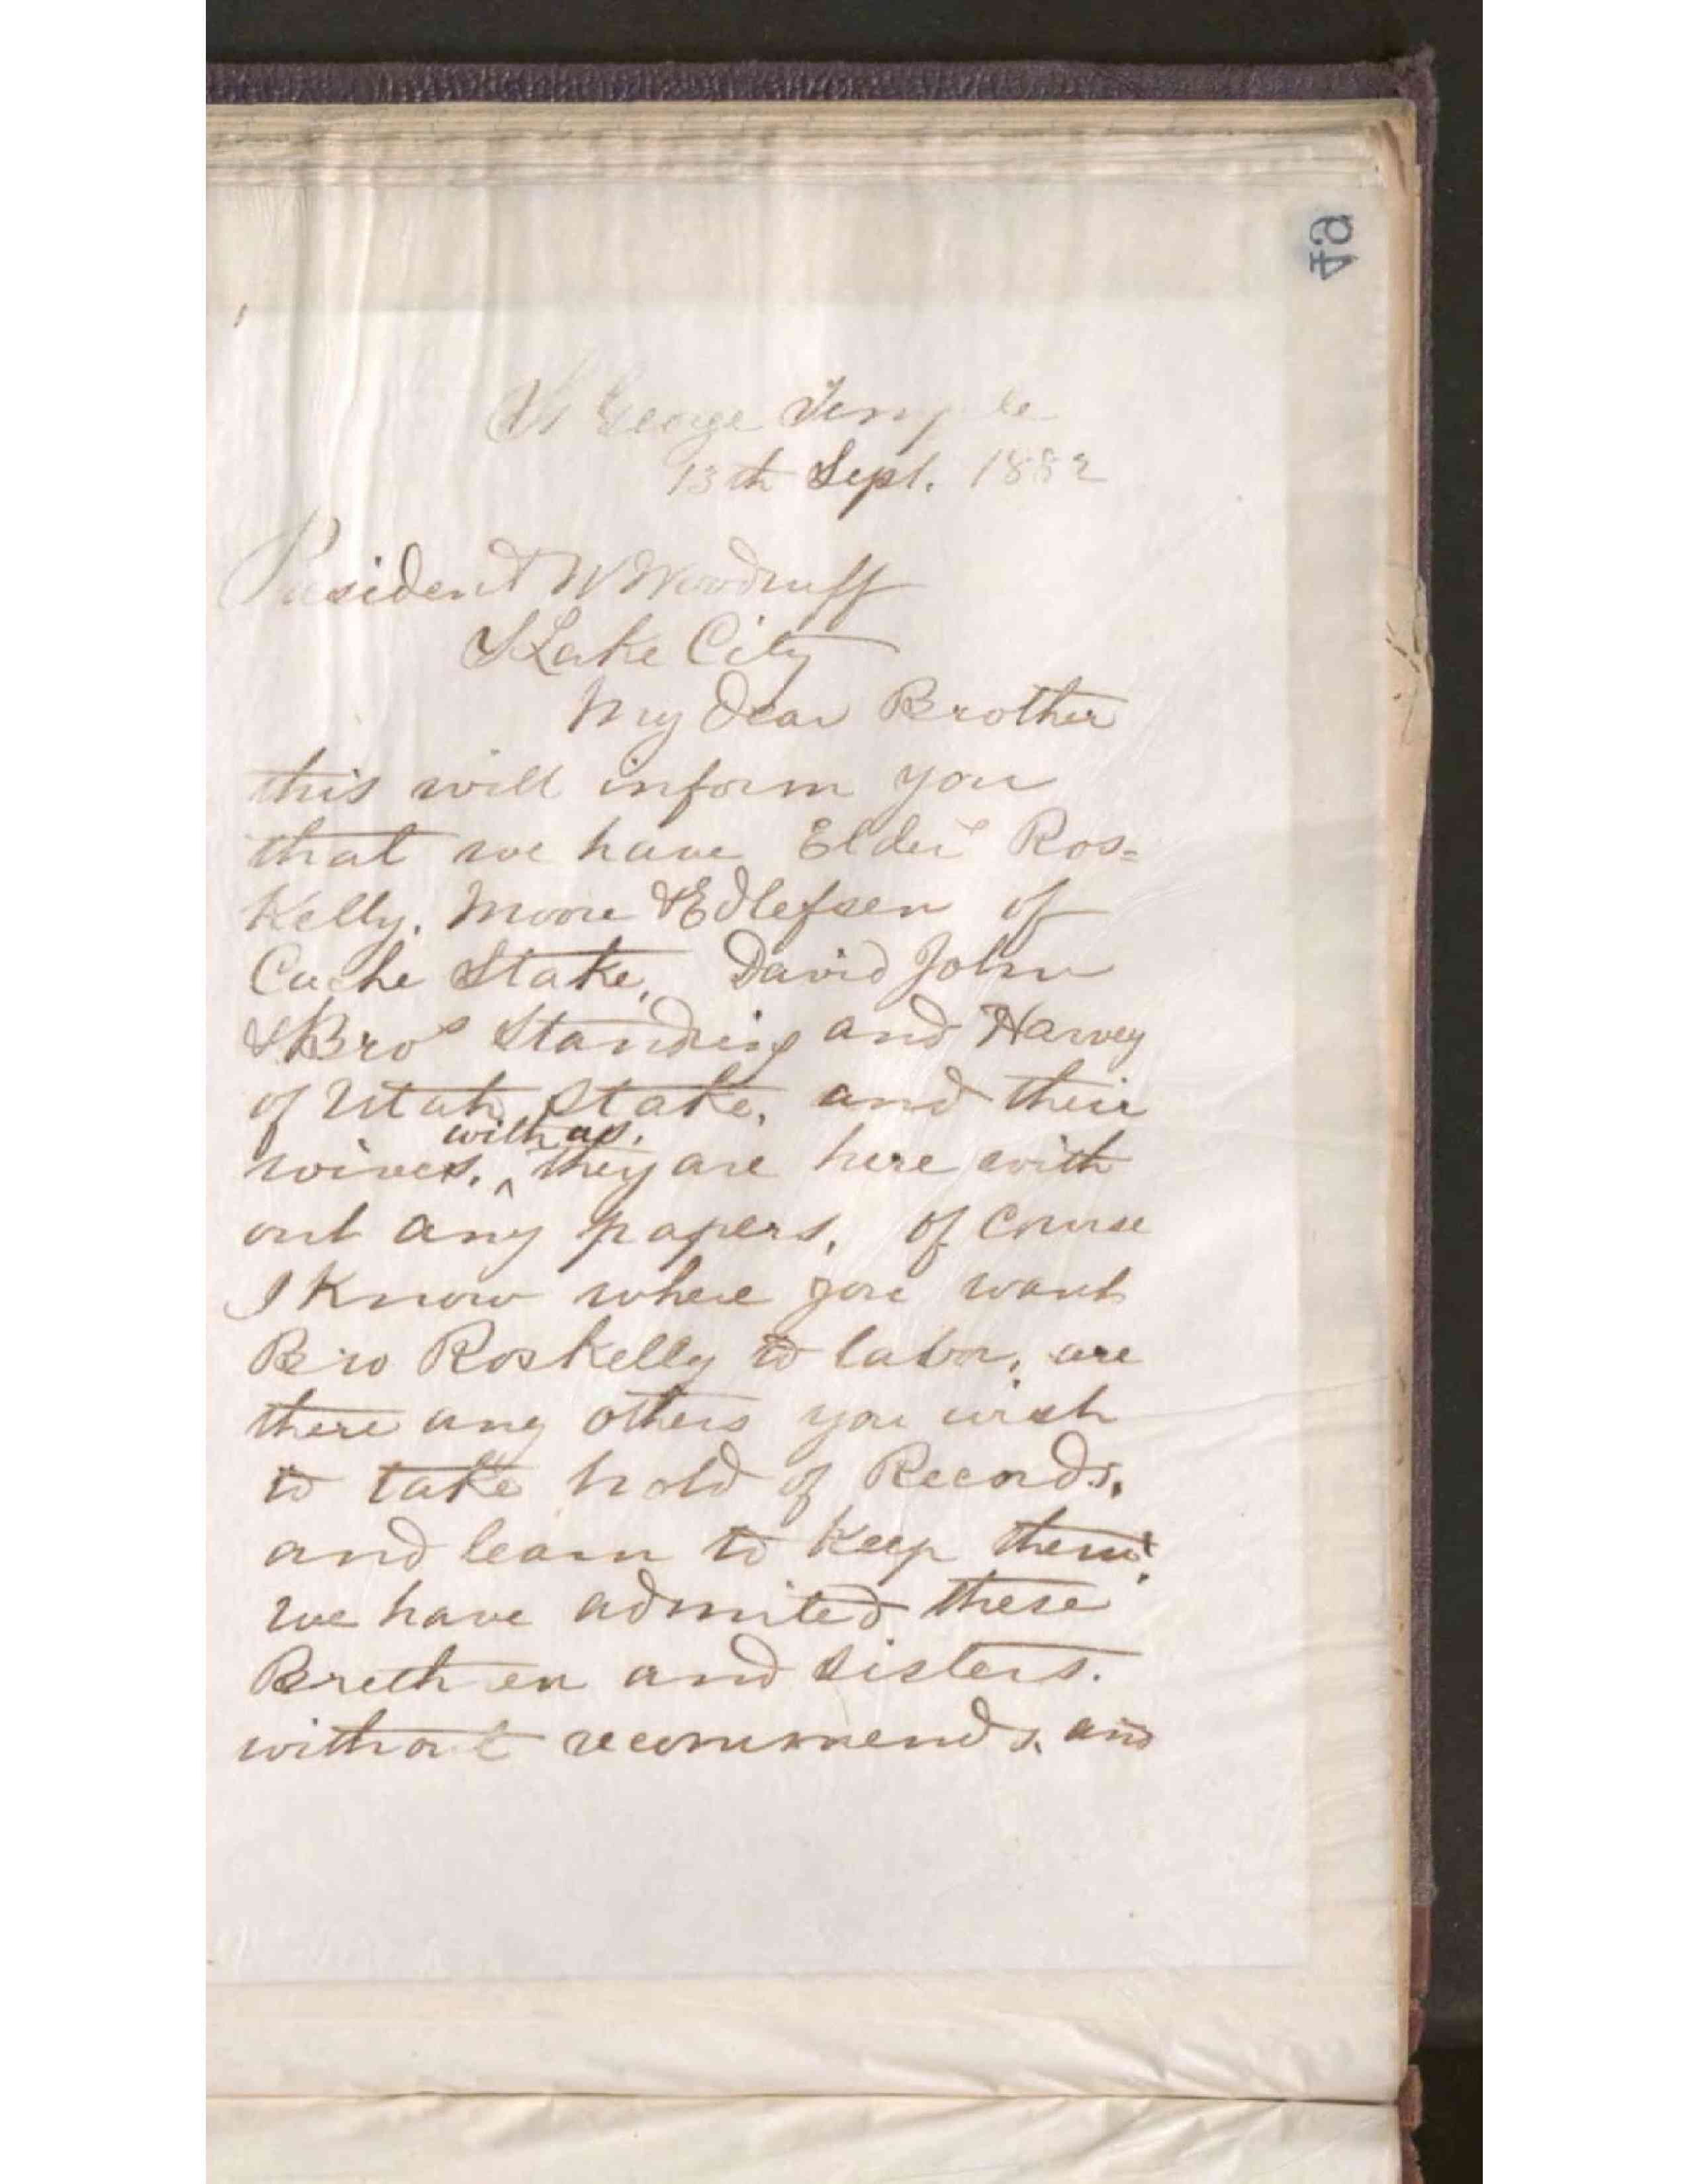 49
St George Temple
13th Sept. 1882
President W Woodruff
S Lake City
My Dear Brother
this will inform you
that we have Elders Ros=
Kelly. Moore & Edlefsen of
Cache Stake, David John
& Bros Standing and Harvey
of Utah Stake, and their
with us.
wives. ^ they are here with
out any papers, of Course
I Know where you want
Bro Roskelly to labor, are
there any others you wish
to take hold of Records,
and learn to Keep them?
we have admited these
Brethren and Sisters.
without recommends, and